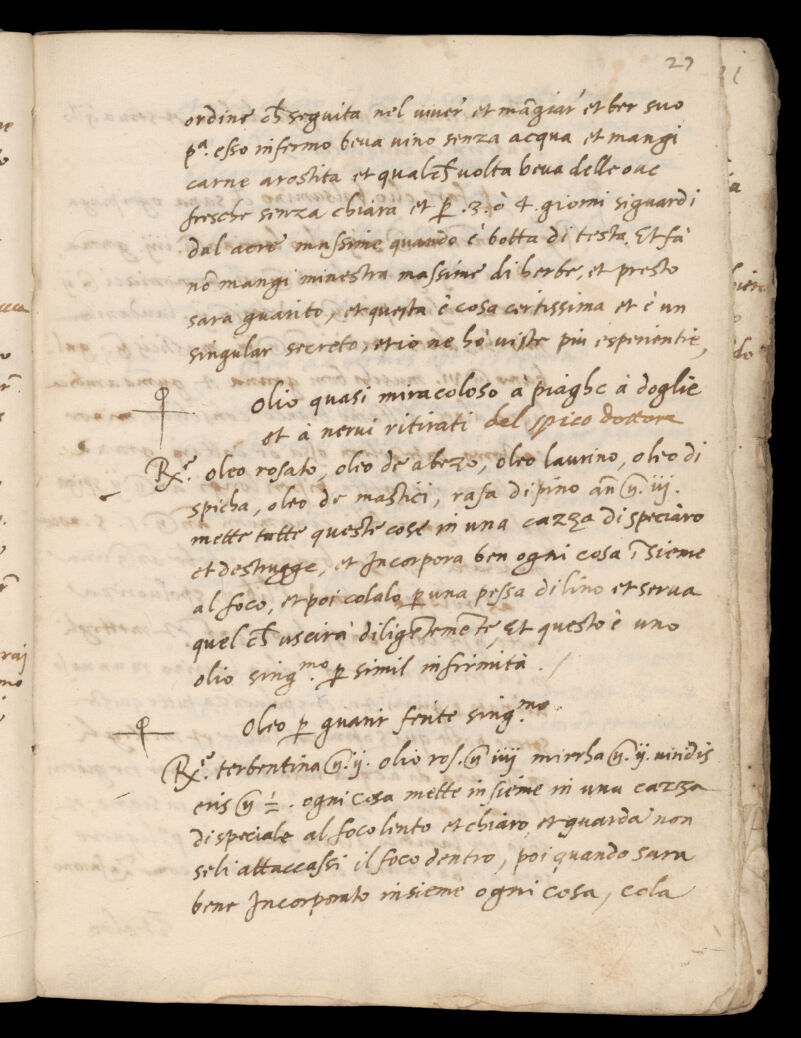 27
ordine ch̄ seguita nel viver et mãgiar et ber suo
pª. esso infermo beva vino senza acqua et mangi
carne arostita et qualch̄ volta beva delle ove
fresche senza chiara et p̱ .3. ò 4. giorni si guardi
dal aere massime quando è botta di testa. Et fa
nõ mangi minestra massime di herbe, et presto
sara guarito, et questa è cosa certissima et è un
singular secreto, et io ne hò viste più esperientie,
Olio quasi miracoloso à piaghe à doglie
et à nervi ritirati del spico dottore
Rx.e oleo rosato, oleo de abezo, oleo laurino, oleo di
spicha, oleo de mastici, rasa di pino añ ℥. iij.
mette tutte queste cose in una cazza di speciaro
et destrugge, et Incorpora ben ogni cosa ĩsieme
al foco, et poi colalo p̱ una pessa di lino et serva
quel ch̄ uscirà diligẽtemẽte, Et questo è uno
olio sing.mo p̱ simil infirmità. /
Oleo p̱ guarir ferite sing.mo.
Rx.e terbentina ℥. ij. olio ros. ℥ iiij mirrha ℥. ij. viridis
eris ℥ ÷ . ogni cosa mette insieme in una cazza
di speciale al foco lento et chiaro, et guarda non
seli attaccassi il foco dentro, poi quando sara
bene Incorporato insieme ogni cosa, cola